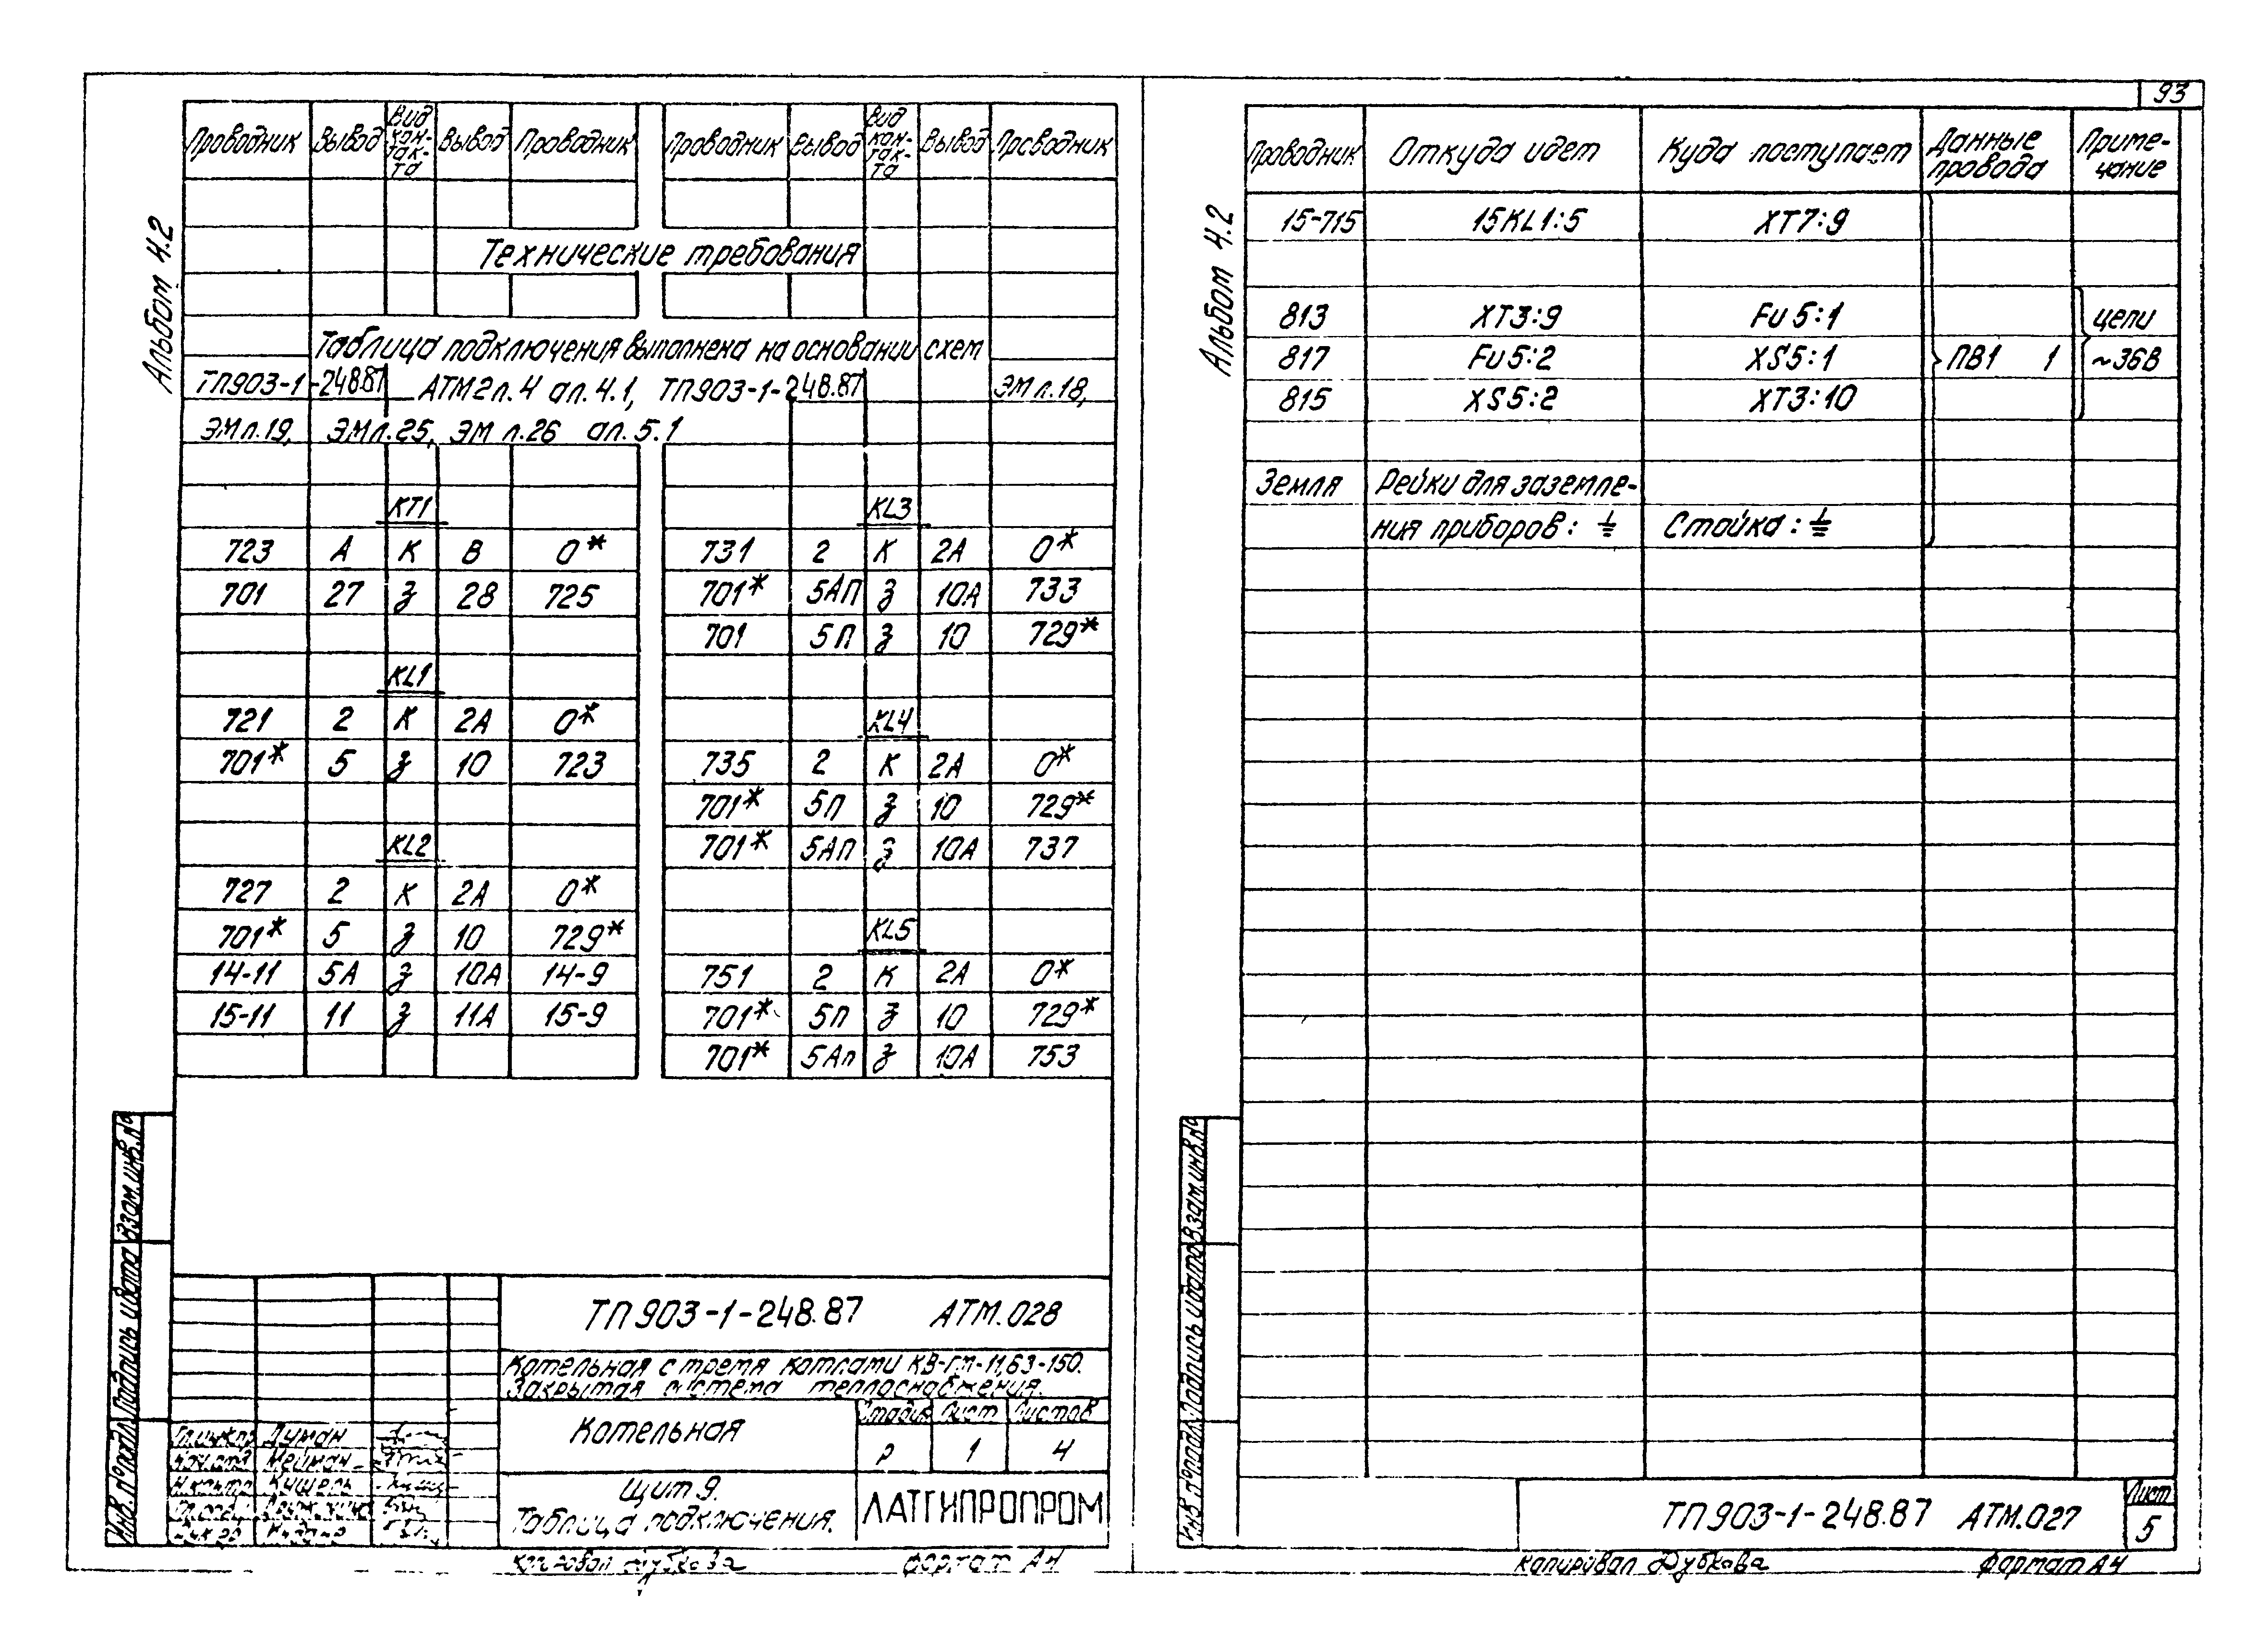 Альбом 4.2
Проводник Вывод Вид кон-так-та Вывод Проводник Проводник Вывод Вид кон-так-та Вывод Проводник
Технические требования
Таблица подключения выполнена на основании схем
ТП903-1-248.87 АТМ2л.4 ал.4.1, ТП903-1-248.87 ЭМ л.18,
ЭМ л.19, ЭМ л.25, ЭМ л.26 ал.5.1
КТ1
723 А К В 0*
701 27 З 28 725
KL1
721 2 К 2А 0*
701* 5 З 10 723
KL2
727 2 К 2А 0*
701* 5 З 10 729*
14-11 5А З 10А 14-9
15-11 11 З 11А 15-9
KL3
731 2 К 2А 0*
701* 5АП З 10А 733
701 5П З 10 729*
KL4
735 2 К 2А 0*
701* 5П З 10 729*
701* 5АП З 10А 737
KL5
751 2 К 2А 0*
701* 5П З 10 729*
701* 5Ап З 10А 753
Инв.№подл. Подпись и дата Взам.инв.№
ТП903-1-248.87 АТМ.028
Котельная с тремя котлами КВ-ГМ-11,63-150.
Закрытая система теплоснабжения.
Котельная
Стадия Лист Листов
Р 1 4
Думан
Щит 9.
Таблица подключения.
ЛАТГИПРОПРОМ
Копировал Дубкова формат А4
93
Альбом 4.2
Проводник Откуда идет Куда поступает Данные провода Приме-чание
15-715 15KL1:5 XT7:9
813 XT3:9 Fu5:1 цепи
817 Fu5:2 XS5:1 ПВ1 1 ~36В
815 XS5:2 XT3:10
Земля Рейки для заземле-
ния приборов: ⏚ Стойка: ⏚
Инв.№подл. Подпись и дата Взам.инв.№
ТП903-1-248.87 АТМ.027
Лист
5
Копировал Дубкова формат А4